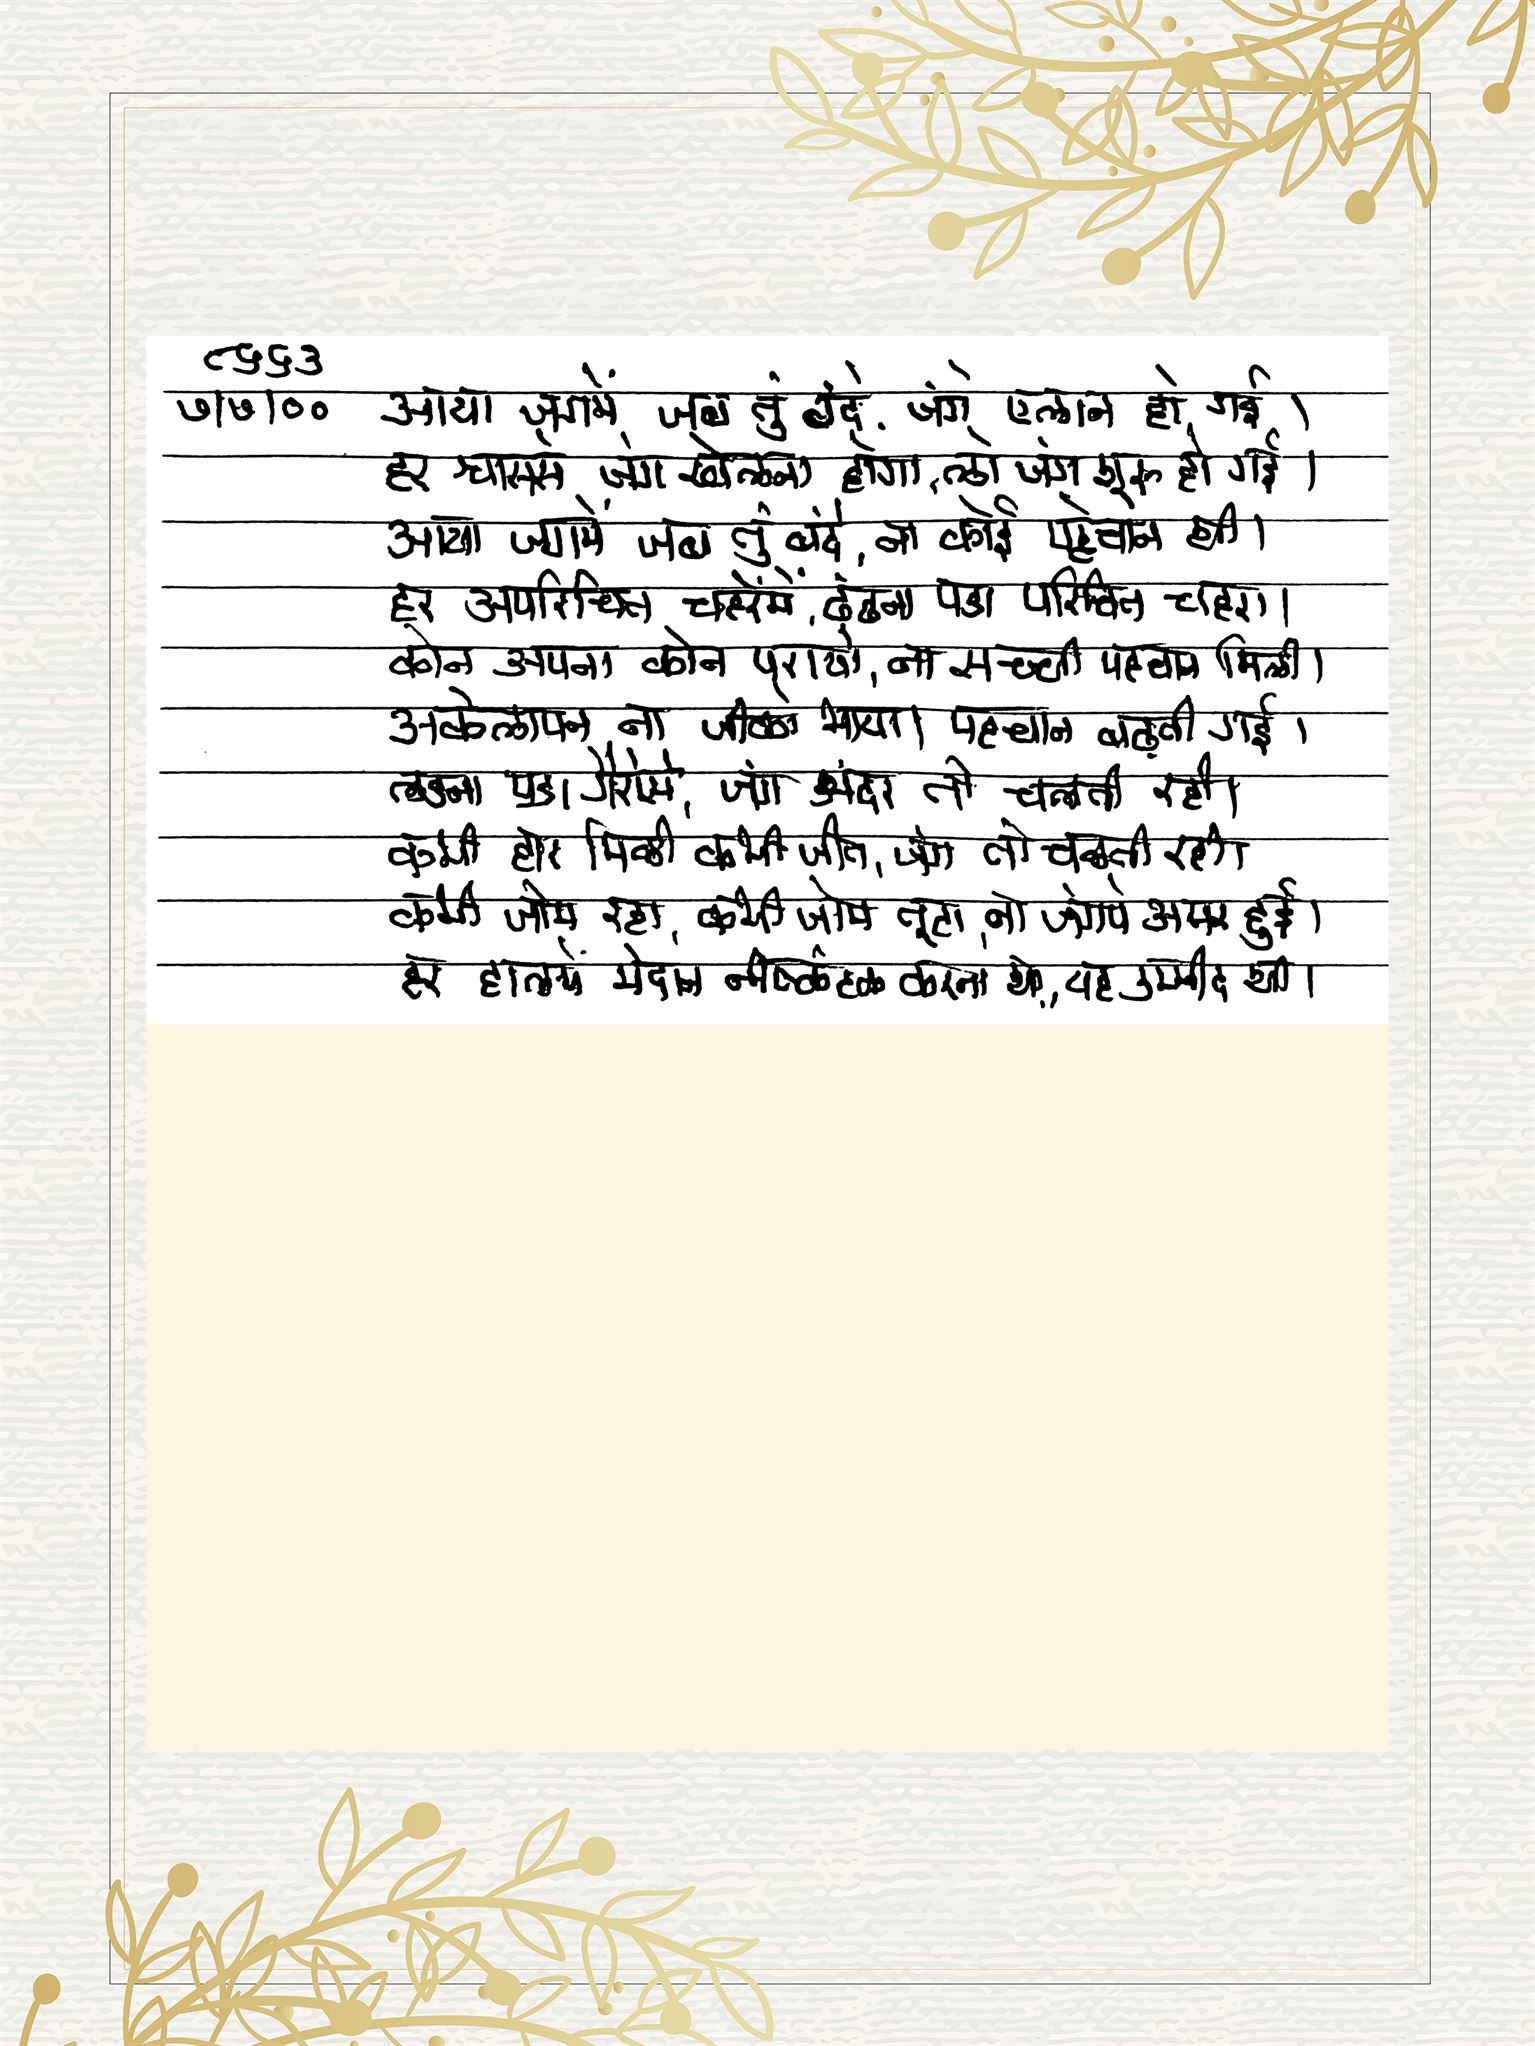 ८५५३
७/७/०० आया जगमें जब तुं बंदे, जंगे एलान हो गई ।
हर श्वाससे जंग खेलना होगा, लो जंग शुरू हो गई ।
आया जगमें जब तुं बंदे, ना कोई पहेचान थी ।
हर अपरिचित चहेरेमें, ढूंढना पडा परिचित चहेरा ।
कोन अपना कोन पराया, ना सच्ची पहचान मिली ।
अकेलापन ना जीवको भाया। पहचान बढ़ती गई ।
लडना पडा गैरोंसे, जंग अंदर तो चलती रही ।
कभी हार मिली कभी जीत, जंग तो चलती रही ।
कभी जोम रहा, कभी जोम तूटा, ना जंगपे असर हुई ।
हर हालमें मेदान नीष्कंटक करना था, यह उम्मीद थी ।